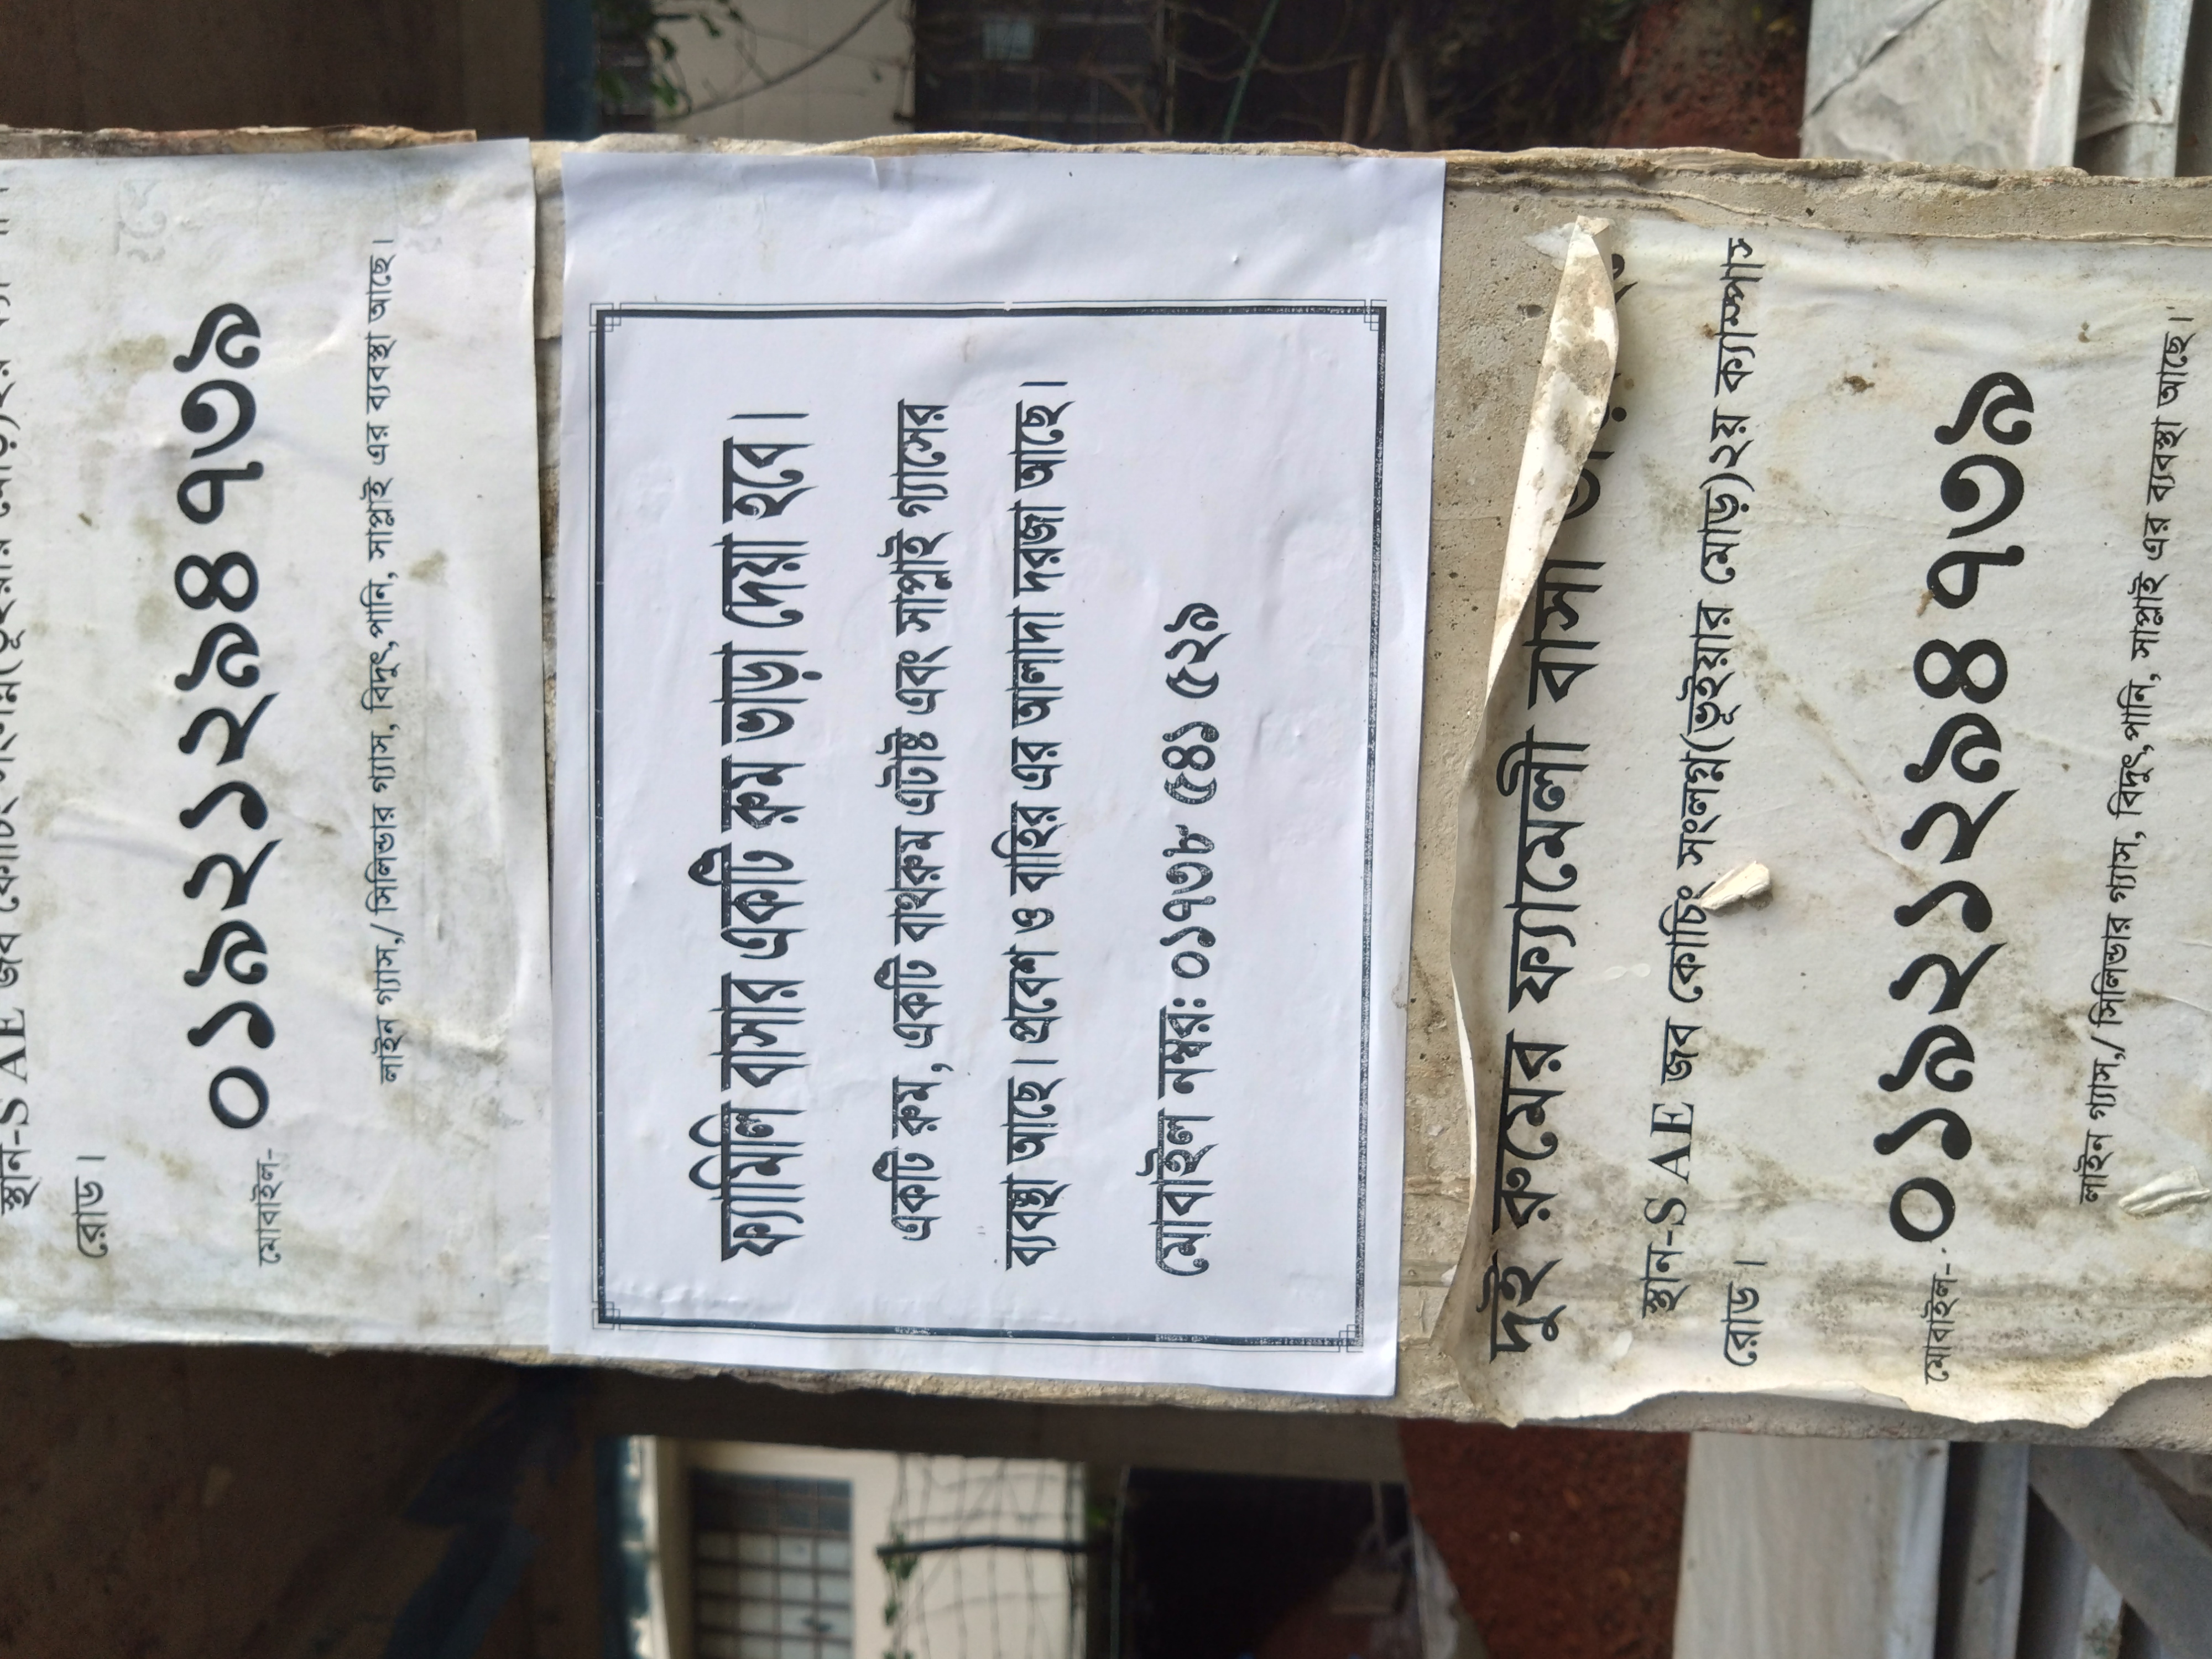 স্থান-S AE জব কোচিং সংলগ্ন(ভূইয়ার মোড়)২য়
রোড।
মোবাইল- ০১৯২১২৯৪৭৩৯
লাইন গ্যাস,/ সিলিন্ডার গ্যাস, বিদুৎ,পানি, সাপ্লাই এর ব্যবস্থা আছে।
ফ্যামিলি বাসার একটি রুম ভাড়া দেয়া হবে।
একটি রুম, একটি বাথরুম এটাষ্ট এবং সাপ্লাই গ্যাসের
ব্যবস্থা আছে। প্রবেশ ও বাহির এর আলাদা দরজা আছে।
মোবাইল নম্বর: ০১৭৩৮ ৫৪১ ৫২৯
দুই রুমের ফ্যামেলী বাসা
স্থান-S AE জব কোচিং সংলগ্ন(ভূইয়ার মোড়)২য় ক্যাম্পাস
রোড।
মোবাইল- ০১৯২১২৯৪৭৩৯
লাইন গ্যাস,/ সিলিন্ডার গ্যাস, বিদুৎ,পানি, সাপ্লাই এর ব্যবস্থা আছে।